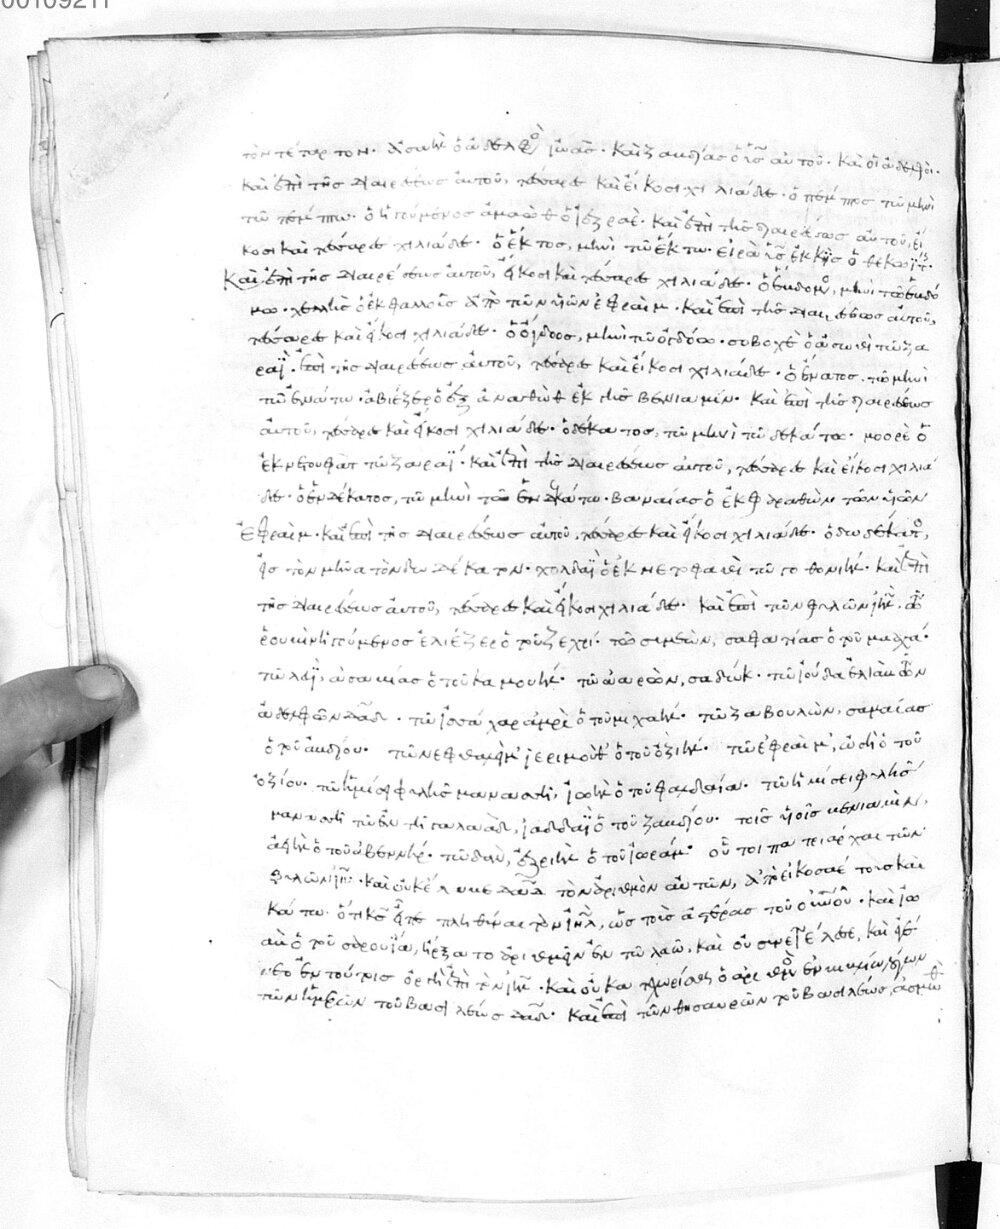 00109211
τὸν τέταρτον. ἀσαὴλ ὁ ἀδελφὸς ἰωάβ. καὶ ζαβδίας ὁ υἱὸς αὐτοῦ. καὶ οἱ ἀδελφοί.
καὶ ἐπὶ τῆς διαιρέσεως αὐτοῦ, τέσσαρες καὶ εἴκοσι χιλιάδες. ὁ πέμπτος τῷ μηνὶ
τῷ πέμπτῳ. ὁ ἡγούμενος ὁ ἰεζραέ. καὶ ἐπὶ τῆς διαιρέσεως αὐτοῦ, εἴ
κοσι καὶ τέσσαρες χιλιάδες. ὁ ἕκτος, μηνὶ τῷ ἕκτῳ. ὁ θεκωίτης.
καὶ ἐπὶ τῆς διαιρέσεως αὐτοῦ, εἴκοσι καὶ τέσσαρες χιλιάδες. ὁ ἕβδομος, μηνὶ τῷ ἑβδό
μῳ. χελλὴς ὁ ἐκ φαλλοῦς ἀπὸ τῶν υἱῶν ἐφραΐμ. καὶ ἐπὶ τῆς διαιρέσεως αὐτοῦ,
τέσσαρες καὶ εἴκοσι χιλιάδες. ὁ ὄγδοος, μηνὶ τῷ ὀγδόῳ. σοβοχὲ ὁ ἀσωθὶ τῷ ζα
ραΐ. ἐπὶ τῆς διαιρέσεως αὐτοῦ, τέσσαρες καὶ εἴκοσι χιλιάδες. ὁ ἔνατος. τῷ μηνὶ
τῷ ἐνάτῳ. ἀβιέζερ ὁ ἐξ ἀναθὼθ ἐκ τῆς βενιαμίν. καὶ ἐπὶ τῆς διαιρέσεως
αὐτοῦ, τέσσαρες καὶ εἴκοσι χιλιάδες. ὁ δέκατος, τῷ μηνὶ τῷ δεκάτῳ. μοορὲ ὁ
ἐκ νετουφὰτ τῷ ζαραΐ. καὶ ἐπὶ τῆς διαιρέσεως αὐτοῦ, τέσσαρες καὶ εἴκοσι χιλιά
δες. ὁ ἑνδέκατος, τῷ μηνὶ τῷ ἑνδεκάτῳ. βαναίας ὁ ἐκ φαραθὼν τῶν υἱῶν
ἐφραΐμ. καὶ ἐπὶ τῆς διαιρέσεως αὐτοῦ, τέσσαρες καὶ εἴκοσι χιλιάδες. ὁ δωδέκατος,
εἰς τὸν μῆνα τὸν δωδέκατον. χολδαῒ ὁ ἐκ νετωφαθὶ τῷ γοθονιήλ. καὶ ἐπὶ
τῆς διαιρέσεως αὐτοῦ, τέσσαρες καὶ εἴκοσι χιλιάδες. καὶ ἐπὶ τῶν φυλῶν ἰηλ. τῷ
ῥουβὴν ἡγούμενος ἐλιέζερ ὁ τοῦ ζεχρί. τῷ συμεὼν, σαφατίας ὁ τοῦ μααχά.
τῷ λευΐ, ἀσαβίας ὁ τοῦ καμουήλ. τῷ ἀαρὼν, σαδώκ. τῷ ἰούδα ἐλιὰβ τῶν
ἀδελφῶν δαδ. τῷ ἰσσάχαρ ἀμρὶ ὁ τοῦ μιχαήλ. τῷ ζαβουλὼν, σαμαίας
ὁ τοῦ ἀβδίου. τῷ νεφθαλεὶμ ἰεριμοὺθ ὁ τοῦ ὀζιήλ. τῷ ἐφραῒμ, ὠσὴ ὁ τοῦ
ὀζίου. τῷ ἡμίσει φυλῆς μανασσῆ, ἰωὴλ ὁ τοῦ φαδαΐα. τῷ ἡμίσει φυλῆς
μανασσῆ τῷ ἐν τῇ γαλαὰδ, ἰαδδαῒ ὁ τοῦ ζαβδίου. τοῖς υἱοῖς βενιαμὶν,
ἀσιὴλ ὁ τοῦ ἀβεννήρ. τῷ δὰν, ἐζριὴλ ὁ τοῦ ἰωράμ. οὗτοι πατριάρχαι τῶν
φυλῶν ἰηλ. καὶ οὐκ ἔλαβε δαδ τὸν ἀριθμὸν αὐτῶν, ἀπὸ εἰκοσαέτους καὶ
κάτω. ὅτι κς εἶπε πληθύναι τὸν ἰηλ, ὡς τοὺς ἀστέρας τοῦ οὐνοῦ. καὶ ἰω
ὰβ ὁ τοῦ σαρουΐα, ἤρξατο ἀριθμεῖν ἐν τῷ λαῷ, καὶ οὐ συνετέλεσε, καὶ ἐγέ
νετο ἐν τούτοις ὀργὴ ἐπὶ τὸν ἰηλ. καὶ οὐ κατεχωρίσθη ὁ ἀριθμὸς ἐν βιβλίῳ λόγων
τῶν ἡμερῶν τοῦ βασιλέως δαδ. καὶ ἐπὶ τῶν θησαυρῶν τοῦ βασιλέως, ἀσμὼθ